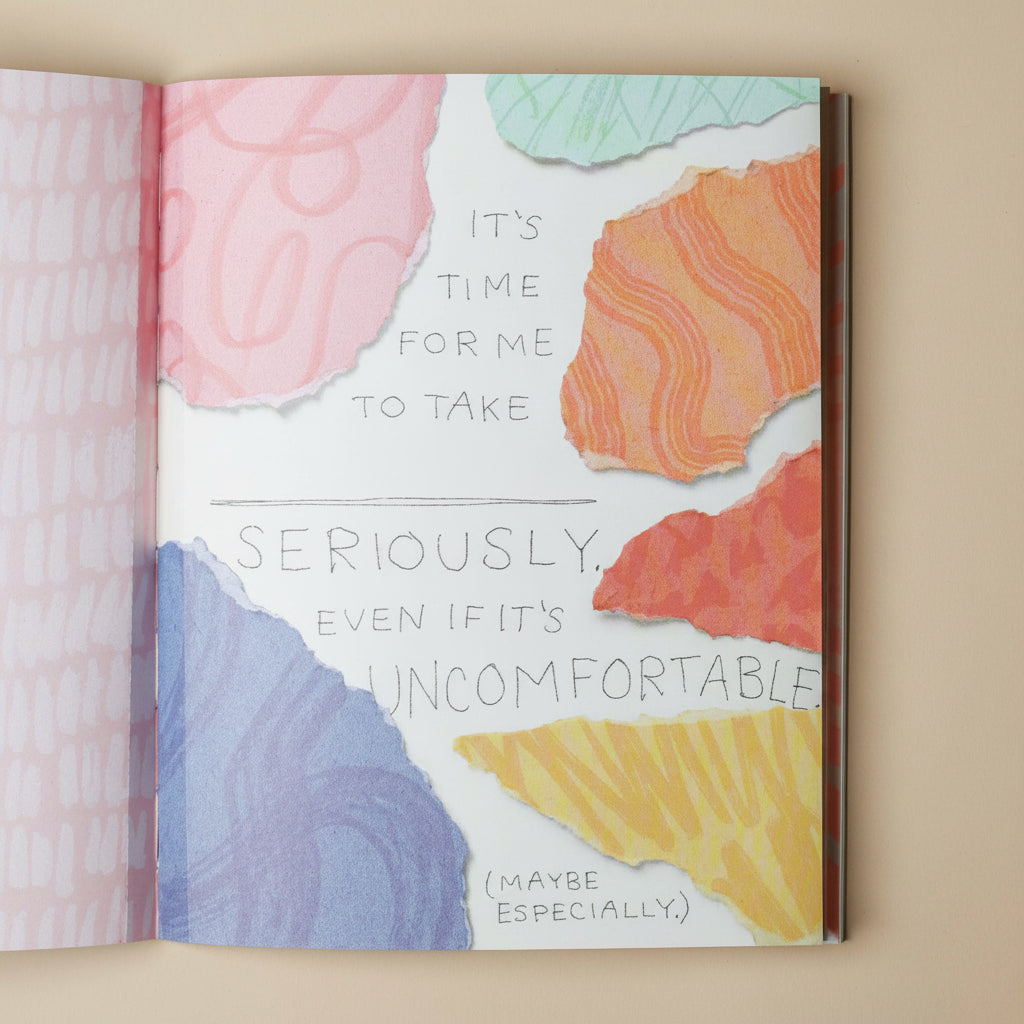 IT'S
TIME
FOR ME
TO TAKE
SERIOUSLY.
EVEN IF IT'S
UNCOMFORTABLE.
(MAYBE
ESPECIALLY.)